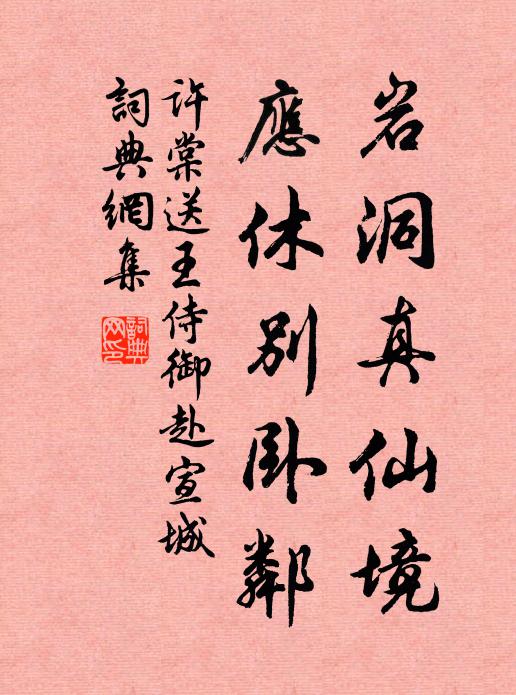 岩洞真仙境
應休別卧鄰
許棠送王侍御赴宣城
詞典網集
詞典
网印